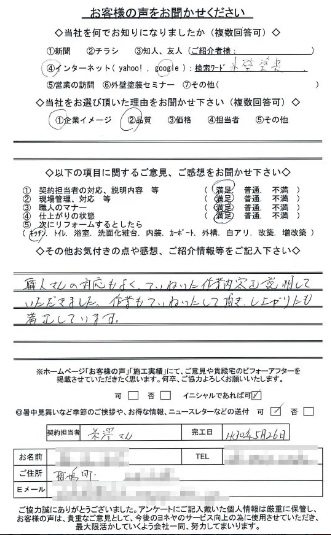 お客様の声をお聞かせください
◇当社を何でお知りになりましたか（複数回答可）◇
①新聞 ②チラシ ③知人、友人（ご紹介者様： ）
④インターネット（yahoo!．google）：検索ワード 米澤塗装
⑤営業の訪問 ⑥外壁塗装セミナー ⑦その他（ ）
◇当社をお選び頂いた理由をお聞かせ下さい（複数回答可）◇
①企業イメージ ②品質 ③価格 ④担当者 ⑤その他
◇以下の項目に関するご意見、ご感想をお聞かせ下さい◇
① 契約担当者の対応、説明内容 等 （ 満足． 普通． 不満 ）
② 現場管理、対応 等 （ 満足． 普通． 不満 ）
③ 職人のマナー （ 満足． 普通． 不満 ）
④ 仕上がりの状態 （ 満足． 普通． 不満 ）
⑤ 次にリフォームするとしたら
（キッチン、トイレ、浴室、洗面化粧台、内装、カーポート、外構、白アリ、改築、増改築）
◇その他お気付きの点や感想、ご紹介情報等をご記入下さい◇
職人さんの対応もよく、ていねいに作業内容を説明して
いただきました。作業もていねいにして頂き、仕上がりにも
満足しています。
※ホームページ「お客様の声」「施工実績」にて、ご意見や貴総宅のビフォーアフターを
掲載させていただきたく思います。何卒、ご協力よろしくお願いいたします。
可 □ 否 □ イニシャルであれば可 ☑
◎暑中見舞いなど季節のご挨拶や、お得な情報、ニュースレターなどの送付 可 ☑ 否 □
契約担当者 米澤さん 完工日 H30年5月26日
お名前 TEL
ご住所
Eメール
ご協力誠にありがとうございました。アンケートにご記入戴いた個人情報は厳重に保管し、
お客様の声は、貴重なご意見として、今後のヨネヤのサービス向上の為に使用させていただき、
最大限活かしていくよう会社一同、努力してまいります。